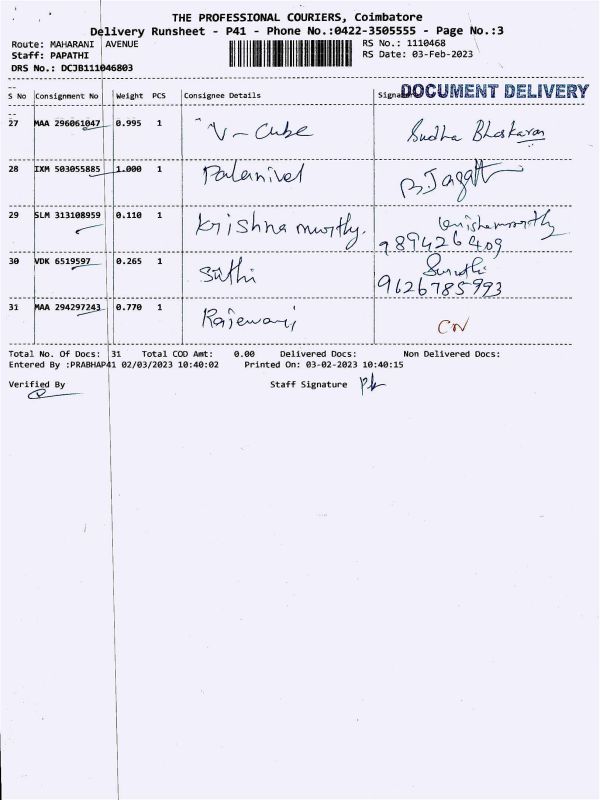 THE PROFESSIONAL COURIERS, Coimbatore
Delivery Runsheet - P41 - Phone No.:0422-3505555 - Page No.:3
Route: MAHARANI AVENUE RS No.: 1110468
Staff: PAPATHI RS Date: 03-Feb-2023
DRS No.: DCJB111046803
DOCUMENT DELIVERY
S No Consignment No Weight PCS Consignee Details
27 MAA 296061047 0.995 1 V-Cube Sudha Bhaskaran
28 IXM 503055885 1.000 1 Palanivel
29 SLM 313108959 0.110 1 Krishna murthy. 9894426409
30 VDK 6519597 0.265 1 9626785993
31 MAA 294297243 0.770 1 CN
Total No. Of Docs: 31 Total COD Amt: 0.00 Delivered Docs: Non Delivered Docs:
Entered By :PRABHAP41 02/03/2023 10:40:02 Printed On: 03-02-2023 10:40:15
Verified By Staff Signature